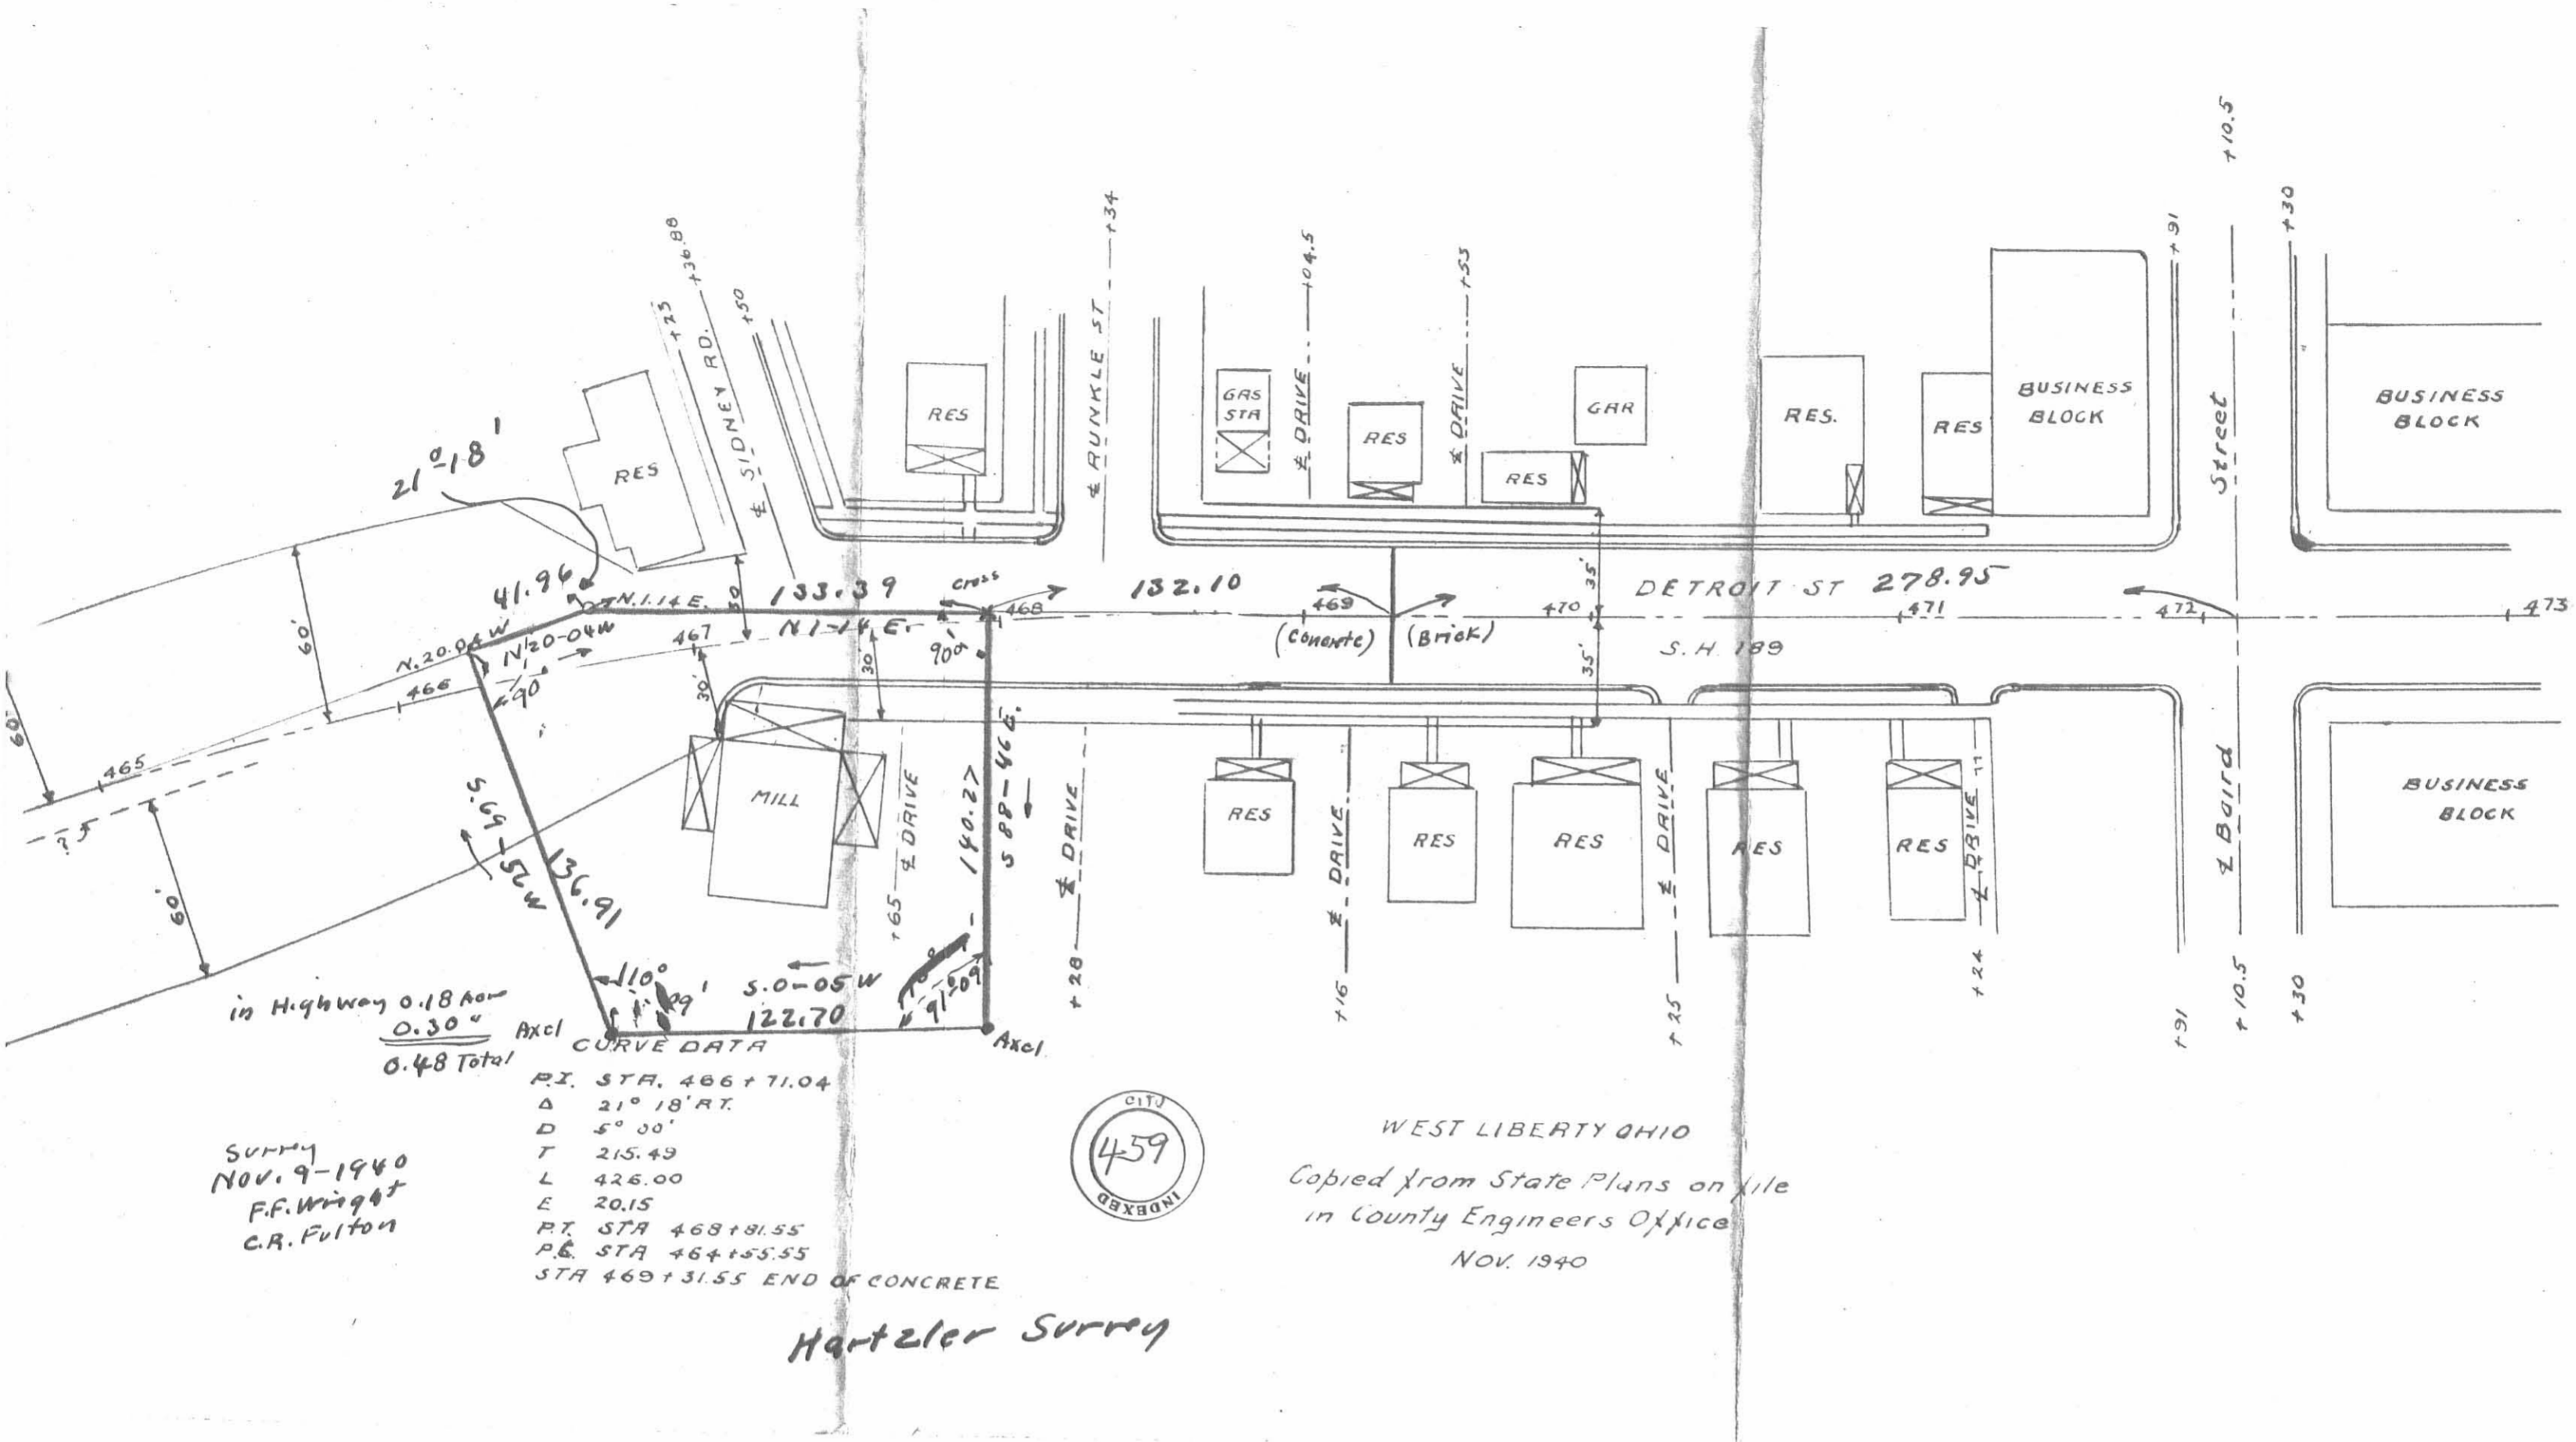 +10.5
+34
+36.88
+91
+30
+25
+50
+04.5
+53
℄ SIDNEY RD.
℄ RUNKLE ST
℄ DRIVE
℄ DRIVE
Street
RES
RES
GAS
STA
RES
RES
GAR
RES.
RES
BUSINESS
BLOCK
BUSINESS
BLOCK
21°-18'
41.96
N.1.14 E.
133.39
cross
132.10
DETROIT ST 278.95
N 1-14 E.
30
35'
35'
N.20.04 W
N 20-04 W
90°
90°
465
466
467
468
469
470
471
472
473
(Concrete)
(Brick)
S.H. 189
60'
60'
60'
30'
30'
MILL
S.69-56 W
136.91
140.27
S 88-46 E.
℄ DRIVE
℄ DRIVE
℄ DRIVE
℄ DRIVE
℄ DRIVE
RES
RES
RES
RES
RES
℄ Baird
BUSINESS
BLOCK
+65
+28
+16
+25
+24
+91
+10.5
+30
110°
29'
S.0-05 W
122.70
91°-09'
Axel
Axel
in Highway 0.18 Acre
0.30 "
0.48 Total
CURVE DATA
P.I. STA. 466+71.04
Δ 21° 18' RT.
D 5° 00'
T 215.49
L 426.00
E 20.15
P.T. STA 468+81.55
P.C. STA 464+55.55
STA 469+31.55 END OF CONCRETE
Survey
Nov. 9-1940
F.F. Wright
C.R. Fulton
CITY
459
INDEXED
WEST LIBERTY OHIO
Copied from State Plans on file
in County Engineers Office
NOV. 1940
Hartzler Survey